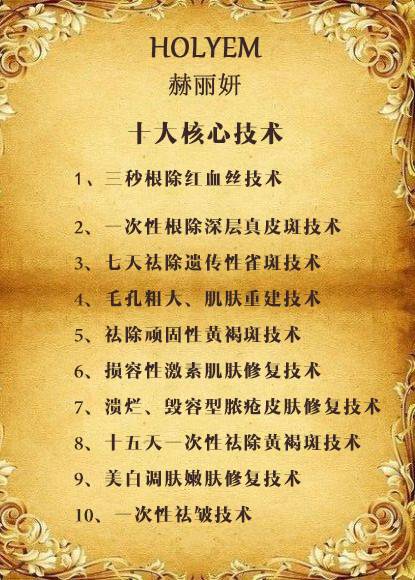 HOLYEM
赫丽妍
十大核心技术
1、三秒根除红血丝技术
2、一次性根除深层真皮斑技术
3、七天祛除遗传性雀斑技术
4、毛孔粗大、肌肤重建技术
5、祛除顽固性黄褐斑技术
6、损容性激素肌肤修复技术
7、溃烂、毁容型脓疮皮肤修复技术
8、十五天一次性祛除黄褐斑技术
9、美白调肤嫩肤修复技术
10、一次性祛皱技术